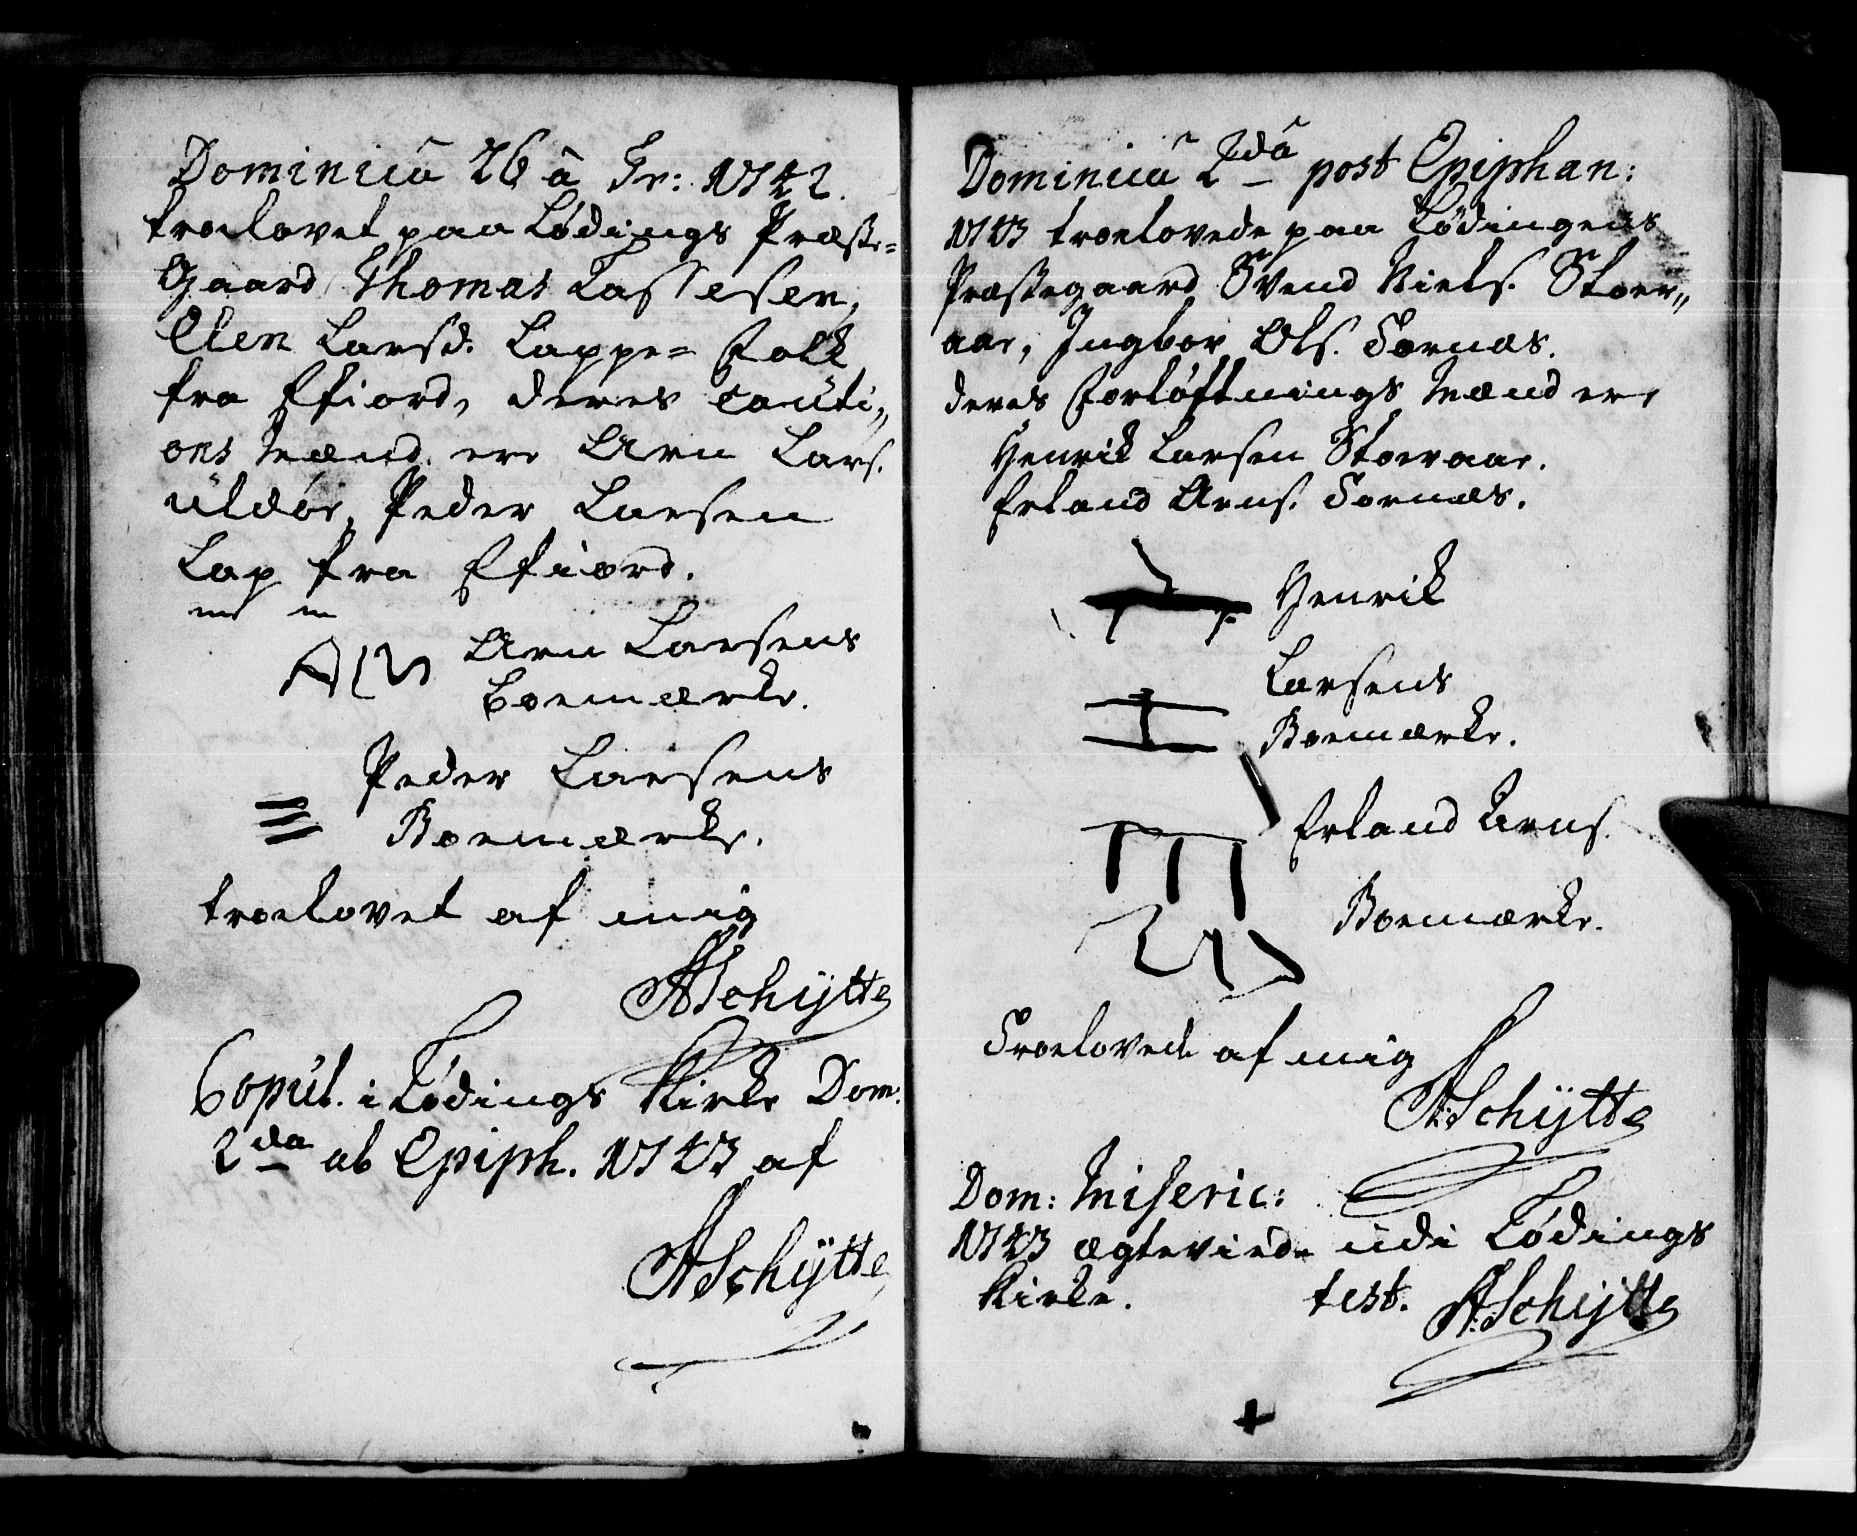 Dominicâ 26 â Tr: 1742.
troelovet paa Lødings Præste=
Gaard Thomas Lassesen,
Elen Larsd. Lappe= Folk
fra Efiord, deres Cauti„
ons Mænd ere Arn Lars.
Peder Larsen
Lap fra Efiord.
Arn Larsens
Boemærke.
Peder Larsens
Boemærke.
troelovet af mig
ASchytte
Copul. i Lødings Kirke Dom.
2da ab Epiph. 1743 af
ASchytte
Dominicâ 2dâ post Epiphan:
1743 troelovede paa Lødingens
Præstegaard Svend Niels. Stoer„
aae, Ingbor Ols. Tornæs.
deres Forløftnings Mænd er,
Henrik Larsen Stoeraae.
Erland Arns. Tornæs.
Henrik
Larsens
Boemærke.
Erland Arns.
Boemærke.
Troelovede af mig
A:Schytte
Dom: Miseric:
1743 ægteviede udi Lødings
Kirke. test. A:Schytte